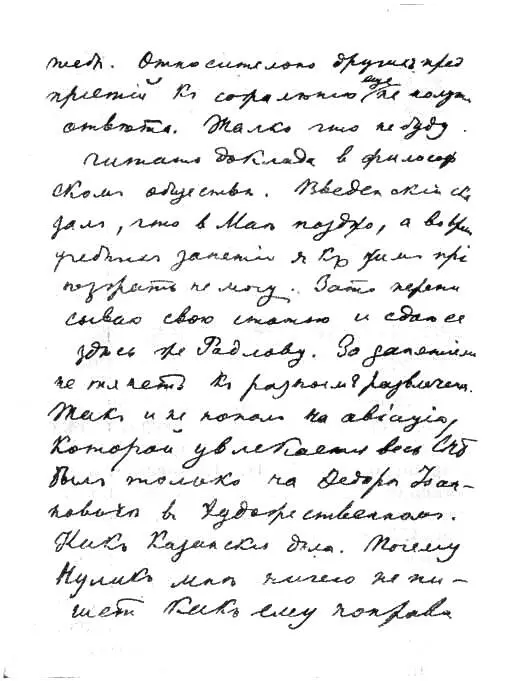 тебѣ. Относительно другихъ пред
пріятій къ сожалѣнію еще не получ
отвѣта. Жалко что не буду
читать доклада в философ
скомъ обществѣ. Введенскій ска
залъ, что в Маѣ поздно, а во время
учебныхъ занятій я къ нимъ прі
не могу. Зато перепи
сываю свою статью и сдамъ ее
здѣсь же Радлову. За занятіями
не тянетъ къ разнымъ развлечен.
Такъ и не попалъ на авіацію,
которой увлекается весь Спб
былъ только на Федорѣ Іоан-
новичѣ в Художественномъ.
Какъ Казанскія дѣла. Почему
Нуликъ мнѣ ничего не пи-
шетъ Какъ ему понрави